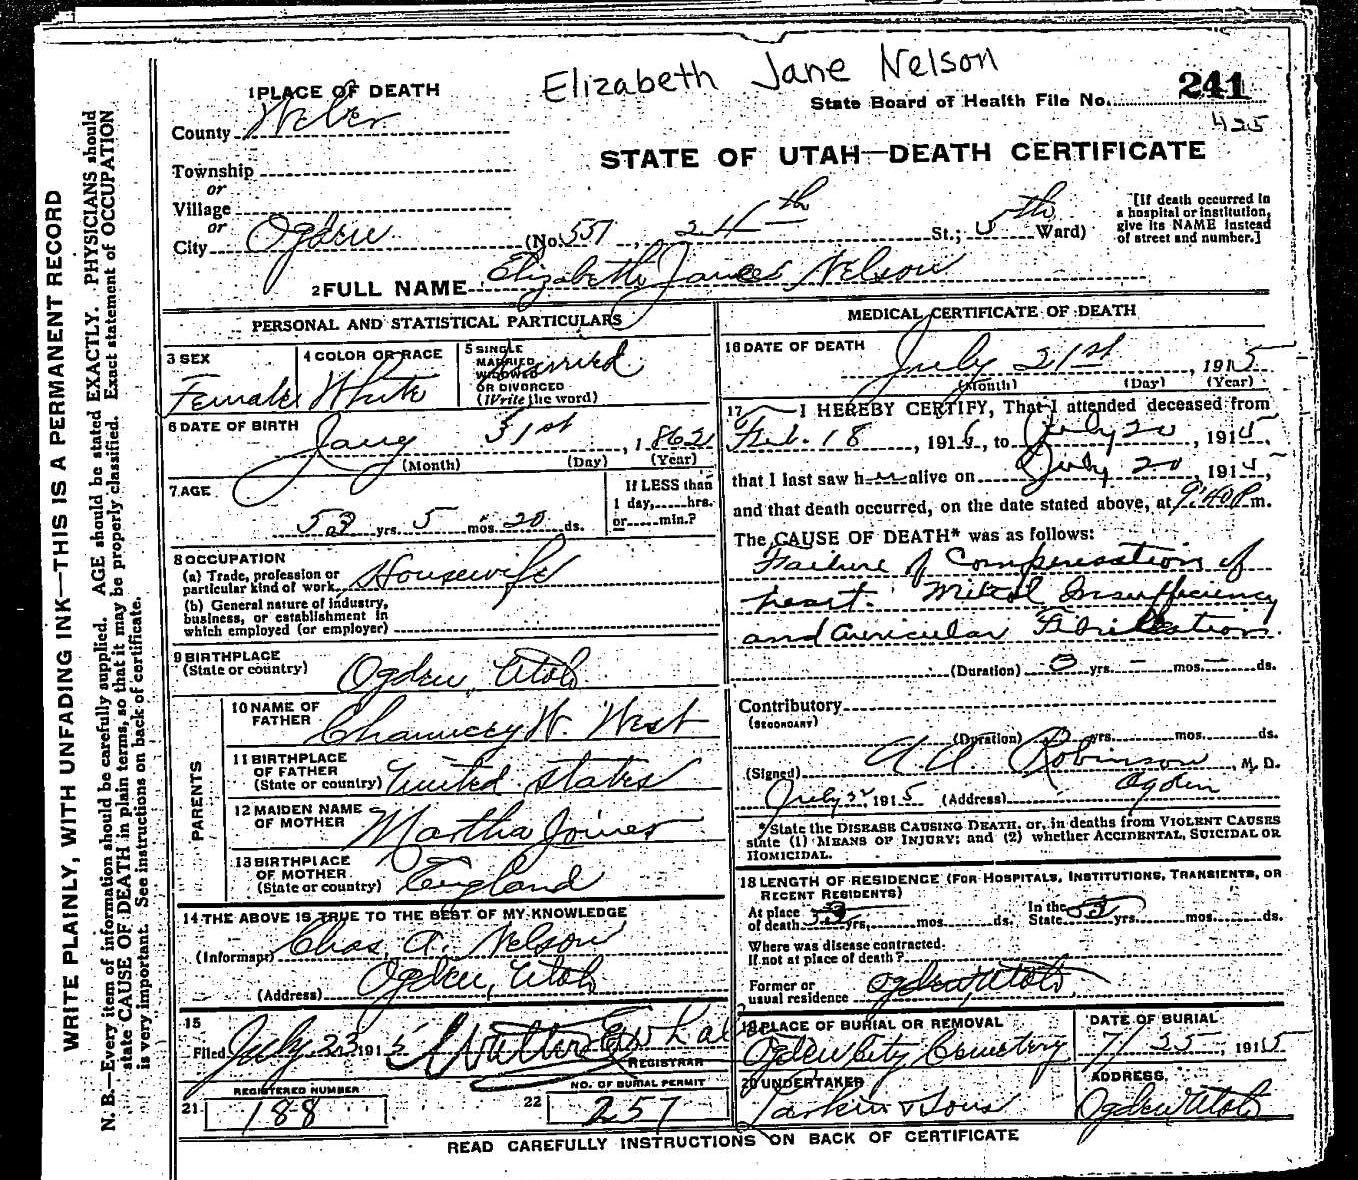 Elizabeth Jane Nelson
241
State Board of Health File No.
425
STATE OF UTAH—DEATH CERTIFICATE
1 PLACE OF DEATH
County Weber
Township
or
Village
or
City Ogden (No. 557, 24th St.; 5th Ward)
[If death occurred in
a hospital or institution,
give its NAME instead
of street and number.]
2 FULL NAME Elizabeth Nelson
PERSONAL AND STATISTICAL PARTICULARS
3 SEX
Female
4 COLOR OR RACE
White
5 SINGLE
MARRIED
WIDOWED
OR DIVORCED
(Write the word)
Married
6 DATE OF BIRTH
31st, 1862
(Month) (Day) (Year)
7 AGE
53 yrs. 5 mos. 20 ds.
If LESS than
1 day, hrs.
or min.?
8 OCCUPATION
(a) Trade, profession or
particular kind of work Housewife
(b) General nature of industry,
business, or establishment in
which employed (or employer)
9 BIRTHPLACE
(State or country) Ogden, Utah
PARENTS
10 NAME OF
FATHER Chauncey W. West
11 BIRTHPLACE
OF FATHER
(State or country) United States
12 MAIDEN NAME
OF MOTHER Martha Joiner
13 BIRTHPLACE
OF MOTHER
(State or country) England
14 THE ABOVE IS TRUE TO THE BEST OF MY KNOWLEDGE
(Informant) Chas A. Nelson
(Address) Ogden, Utah
15
Filed July 23 1915
REGISTRAR
REGISTERED NUMBER
21 188
NO. OF BURIAL PERMIT
22 257
MEDICAL CERTIFICATE OF DEATH
16 DATE OF DEATH
July 21st, 1915
(Month) (Day) (Year)
17 I HEREBY CERTIFY, That I attended deceased from
Feb. 18, 191, to July 20, 1915,
that I last saw h alive on July 20 1915,
and that death occurred, on the date stated above, at 9:40 P m.
The CAUSE OF DEATH* was as follows:
Failure of Compensation of
heart. Mitral Insufficiency
and Auricular Fibrillation.
(Duration) yrs. – mos. – ds.
Contributory
(SECONDARY)
(Duration) yrs. mos. ds.
(Signed) A. A. Robinson, M. D.
July 1915 (Address) Ogden
*State the DISEASE CAUSING DEATH, or, in deaths from VIOLENT CAUSES
state (1) MEANS OF INJURY; and (2) whether ACCIDENTAL, SUICIDAL OR
HOMICIDAL.
18 LENGTH OF RESIDENCE (FOR HOSPITALS, INSTITUTIONS, TRANSIENTS, OR
RECENT RESIDENTS)
At place
of death 53 yrs. mos. ds. In the
State 53 yrs. mos. ds.
Where was disease contracted.
If not at place of death?
Former or
usual residence Ogden, Utah
19 PLACE OF BURIAL OR REMOVAL
Ogden City Cemetery
DATE OF BURIAL
7/25, 1915
20 UNDERTAKER
Larkin & Sons
ADDRESS
Ogden Utah
READ CAREFULLY INSTRUCTIONS ON BACK OF CERTIFICATE
WRITE PLAINLY, WITH UNFADING INK—THIS IS A PERMANENT RECORD
N. B.—Every item of information should be carefully supplied. AGE should be stated EXACTLY. PHYSICIANS should
state CAUSE OF DEATH in plain terms, so that it may be properly classified. Exact statement of OCCUPATION
is very important. See instructions on back of certificate.